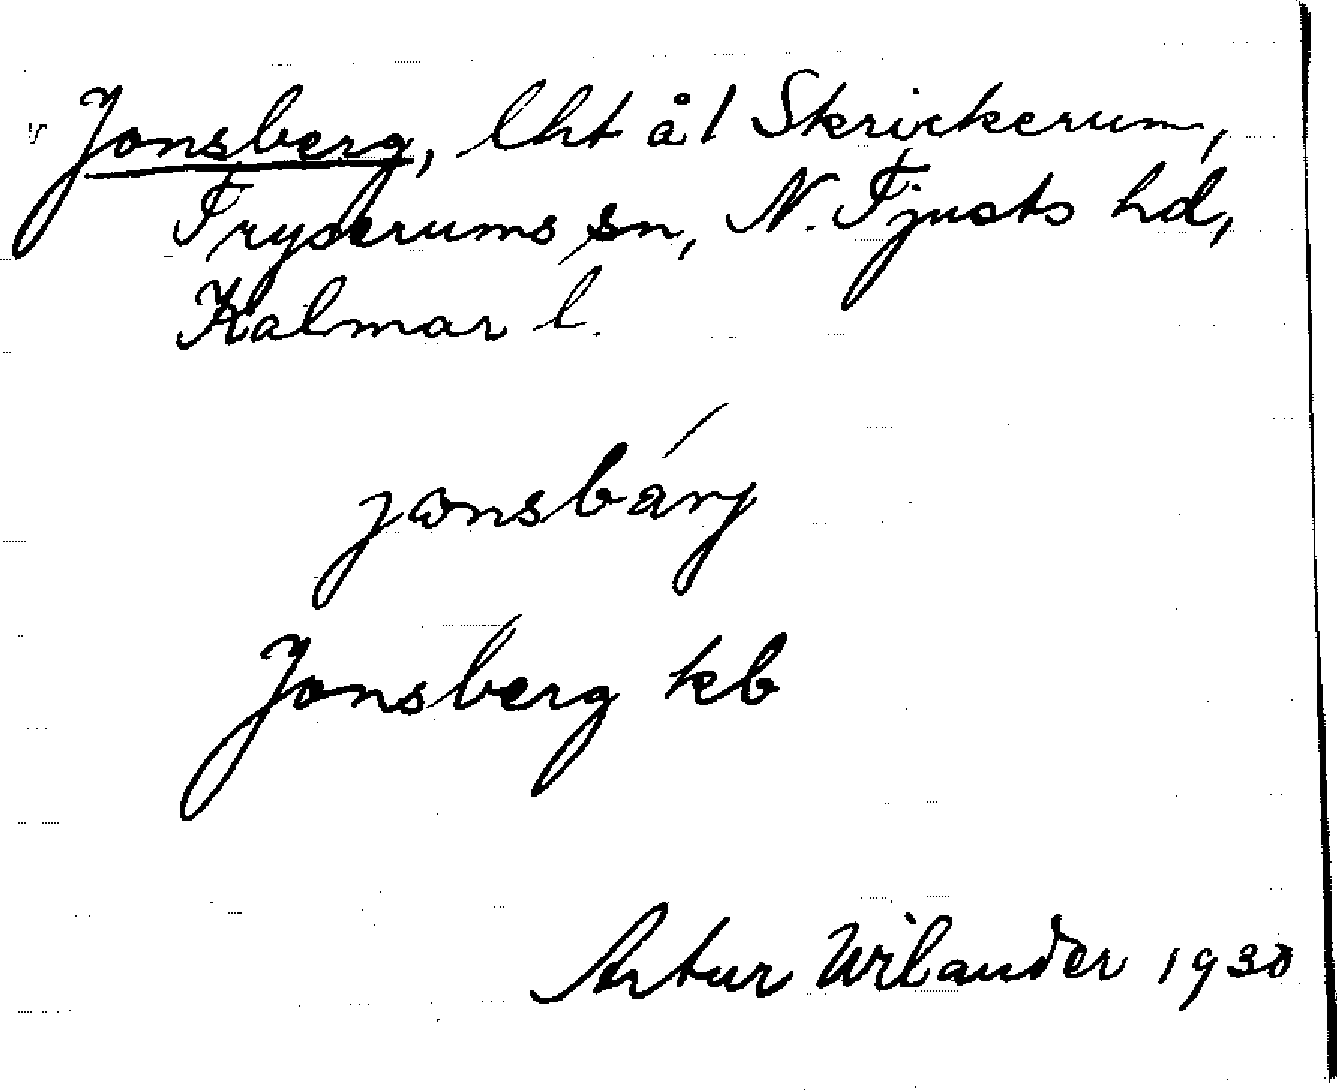 Jonsberg, lht å 1 Skrickerum,
Fryserums sn, N. Tjusts hd,
Kalmar l.
jɷnsbárj
Jonsberg kb
Artur Wilander 1930